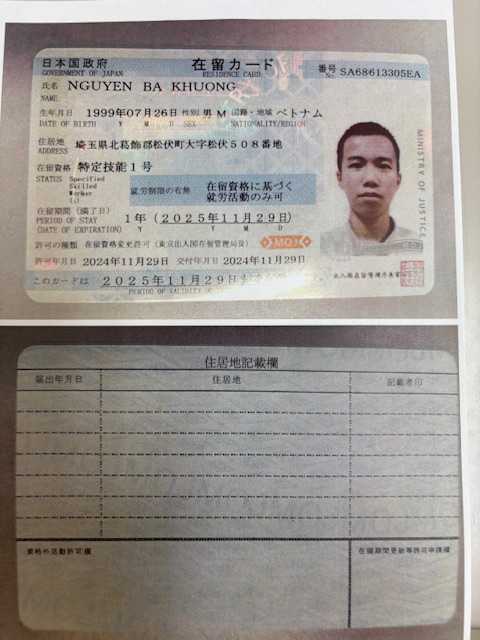 日本国政府 在留カード 番号 SA68613305EA
GOVERNMENT OF JAPAN RESIDENCE CARD No.
氏名 NGUYEN BA KHUONG
NAME
生年月日 1999年07月26日 性別 男 M 国籍・地域 ベトナム
DATE OF BIRTH Y M D SEX NATIONALITY/REGION
住居地 埼玉県北葛飾郡松伏町大字松伏508番地
ADDRESS
在留資格 特定技能1号
STATUS Specified
Skilled
Worker
(i)
就労制限の有無 在留資格に基づく
就労活動のみ可
在留期間(満了日) 1年(2025年11月29日)
PERIOD OF STAY Y M D
(DATE OF EXPIRATION)
許可の種類 在留資格変更許可(東京出入国在留管理局長)
MOJ
許可年月日 2024年11月29日 交付年月日 2024年11月29日
このカードは 2025年11月29日
PERIOD OF VALIDITY OF
MINISTRY OF JUSTICE
住居地記載欄
届出年月日 住居地 記載者印
資格外活動許可欄 在留期間更新等許可申請欄